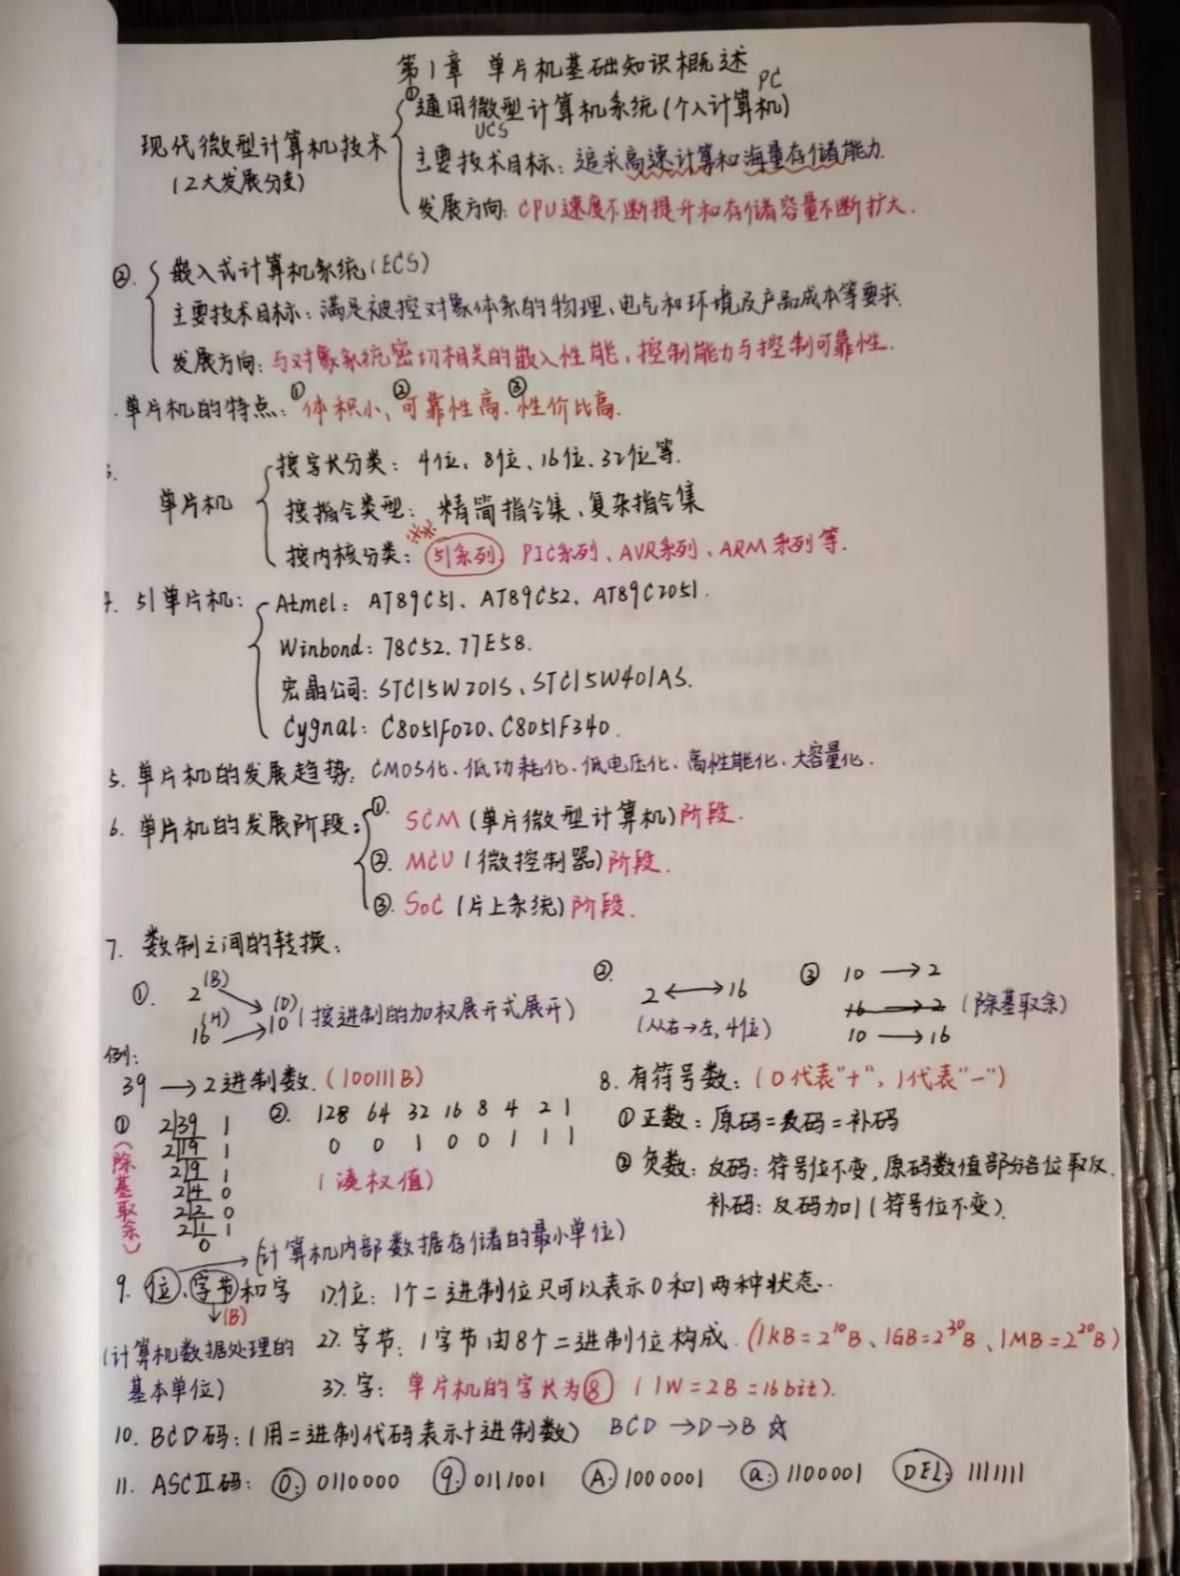 第1章 单片机基础知识概述
①通用微型计算机系统(个人计算机) PC
UCS
现代微型计算机技术
(2大发展分支)
主要技术目标：追求高速计算和海量存储能力.
发展方向：CPU速度不断提升和存储容量不断扩大.
②. 嵌入式计算机系统(ECS)
主要技术目标：满足被控对象体系的物理、电气和环境及产品成本等要求.
发展方向：与对象系统密切相关的嵌入性能、控制能力与控制可靠性.
.单片机的特点：①体积小、②可靠性高、③性价比高.
3.
单片机
按字长分类：4位、8位、16位、32位等.
按指令类型：精简指令集、复杂指令集
按内核分类：51系列、PIC系列、AVR系列、ARM系列等.
4. 51单片机：Atmel：AT89C51、AT89C52、AT89C2051.
Winbond：78C52、77E58.
宏晶公司：STC15W201S、STC15W401AS.
Cygnal：C8051F020、C8051F340.
5. 单片机的发展趋势：CMOS化、低功耗化、低电压化、高性能化、大容量化.
6. 单片机的发展阶段：①. SCM(单片微型计算机)阶段.
②. MCU(微控制器)阶段.
③. SoC(片上系统)阶段.
7. 数制之间的转换：
①. 2(B) → 10(D)
16(H) → 10 (按进制的加权展开式展开)
②. 2 ⟷ 16
(从右→左,4位)
③ 10 → 2
16 → 2 (除基取余)
10 → 16
例：
39 → 2进制数.(100111B)
① 2|39 1
2|19 1
2|9 1
2|4 0
2|2 0
2|1 1
0
(除基取余)
②. 128 64 32 16 8 4 2 1
0 0 1 0 0 1 1 1
(凑权值)
8. 有符号数：(0代表"+"、1代表"-")
①正数：原码=反码=补码
②负数：反码：符号位不变,原码数值部分各位取反.
补码：反码加1(符号位不变).
(计算机内部数据存储的最小单位)
9. 位、字节和字 1>.位：1个二进制位只可以表示0和1两种状态.
(B)
(计算机数据处理的
基本单位)
2>.字节：1字节由8个二进制位构成.(1KB=2¹⁰B、1GB=2³⁰B、1MB=2²⁰B)
3>.字：单片机的字长为⑧ (1W=2B=16bit).
10. BCD码：(用二进制代码表示十进制数) BCD→D→B ☆
11. ASCⅡ码：0：0110000 9：0111001 A：1000001 a：1100001 DEL：1111111